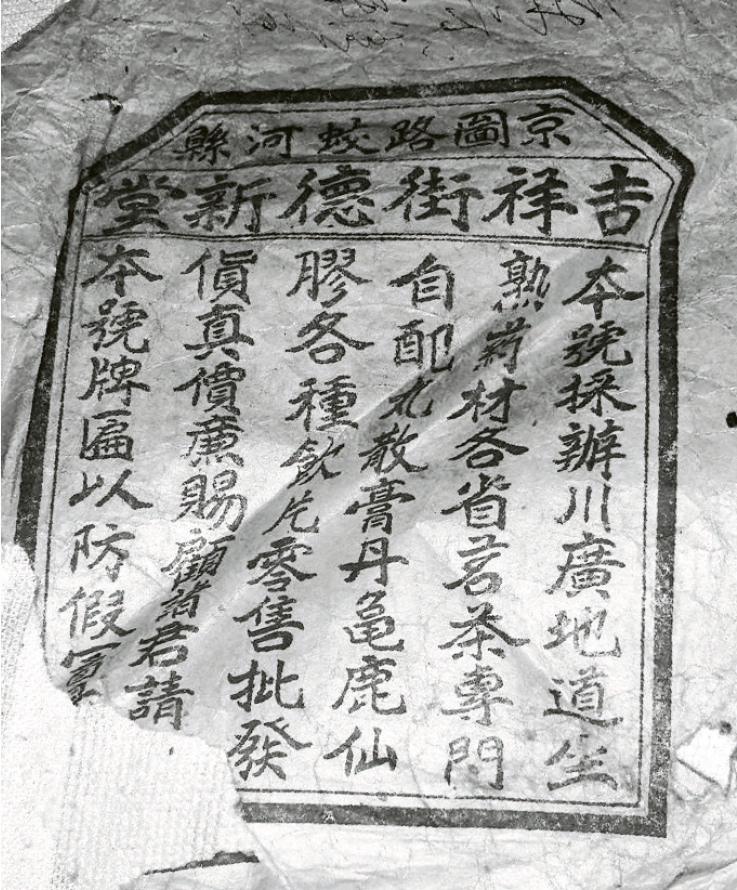 京圖路蛟河縣
吉祥街德新堂
夲號採辦川廣地道生
熟葯材各省茗茶專門
自配丸散膏丹龜鹿仙
膠各種飲片零售批發
貨真價廉賜顧者君請
夲號牌匾以防假